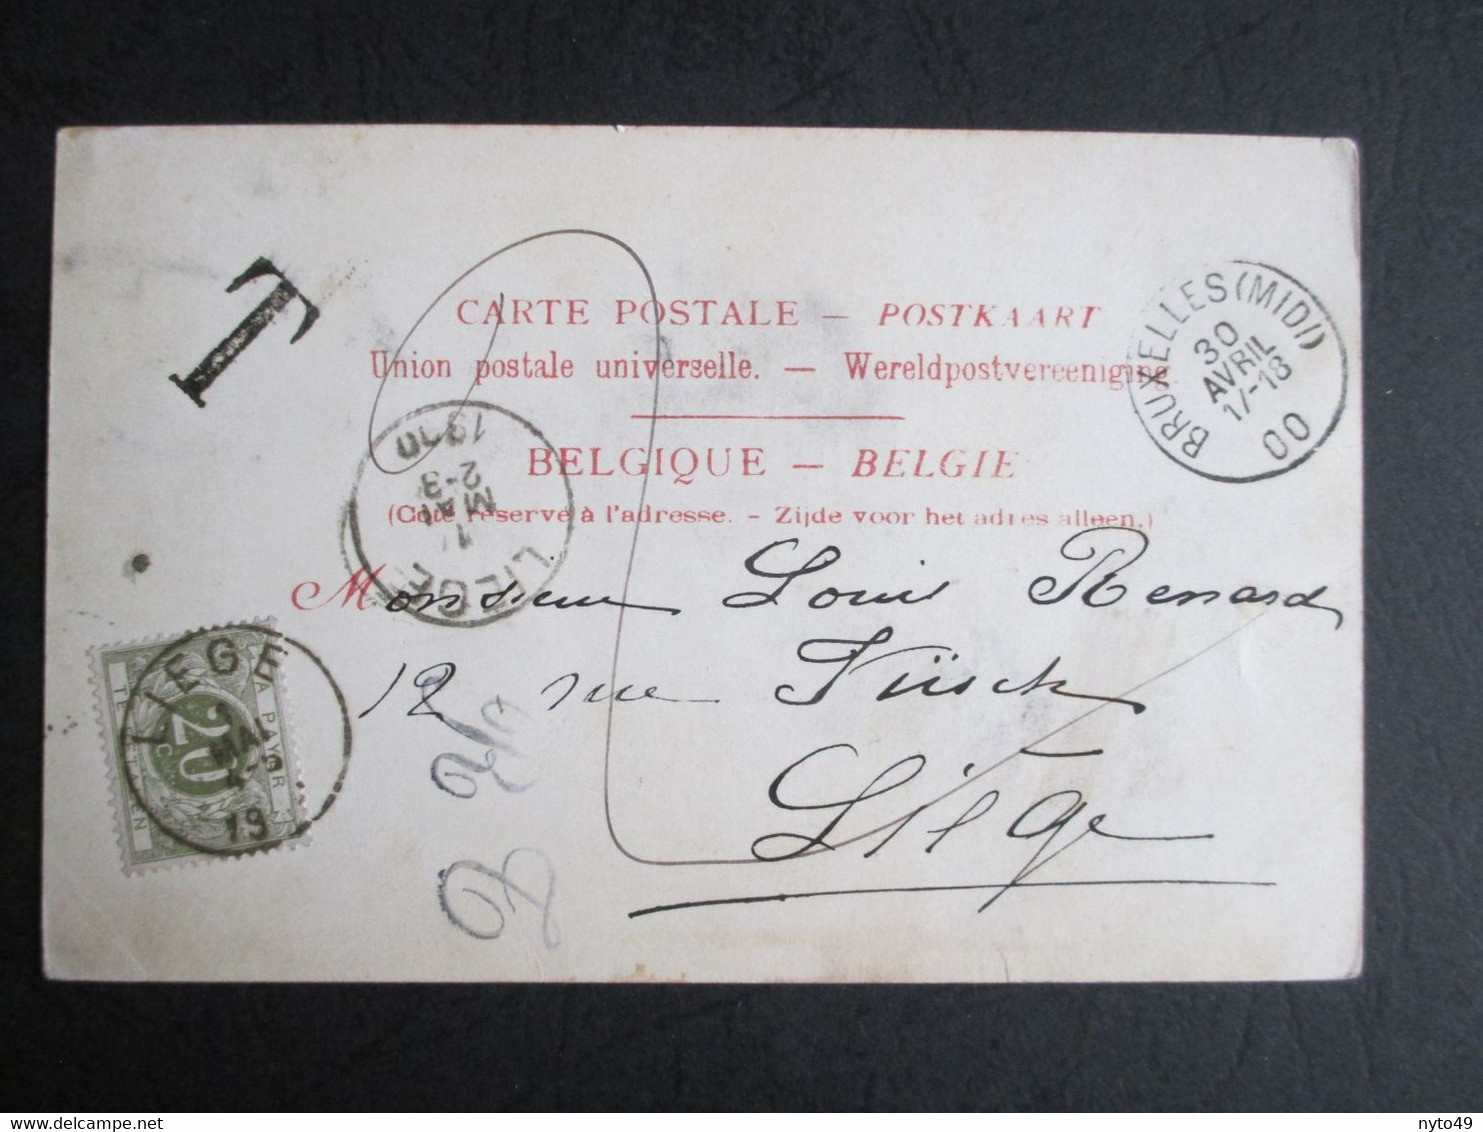 T
CARTE POSTALE — POSTKAART
Union postale universelle. — Wereldpostvereeniging
BELGIQUE — BELGIE
(Côté réservé à l'adresse. - Zijde voor het adres alleen.)
BRUXELLES (MIDI)
30
AVRIL
17-18
00
LIEGE
1
MAI
2-3
1900
Monsieur Louis Renard
12 rue
Liége
LIEGE
MAI
19
A PAYER
20
C
TE BETALEN
delcampe.net
nyto49